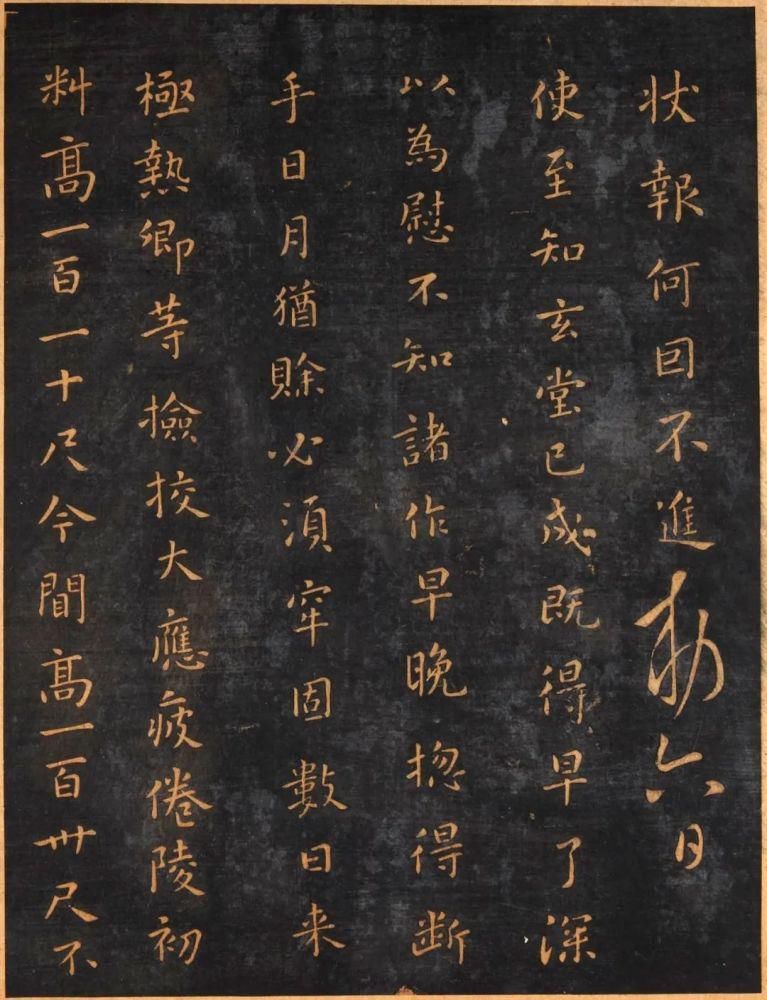 状報何囙不進勅六日
使至知玄堂已成既得早了深
以為慰不知諸作早晚揔得断
手日月猶賒必湏牢固數日来
極熱卿等撿挍大應疲倦陵初
料髙一百一十尺今聞髙一百卅尺不